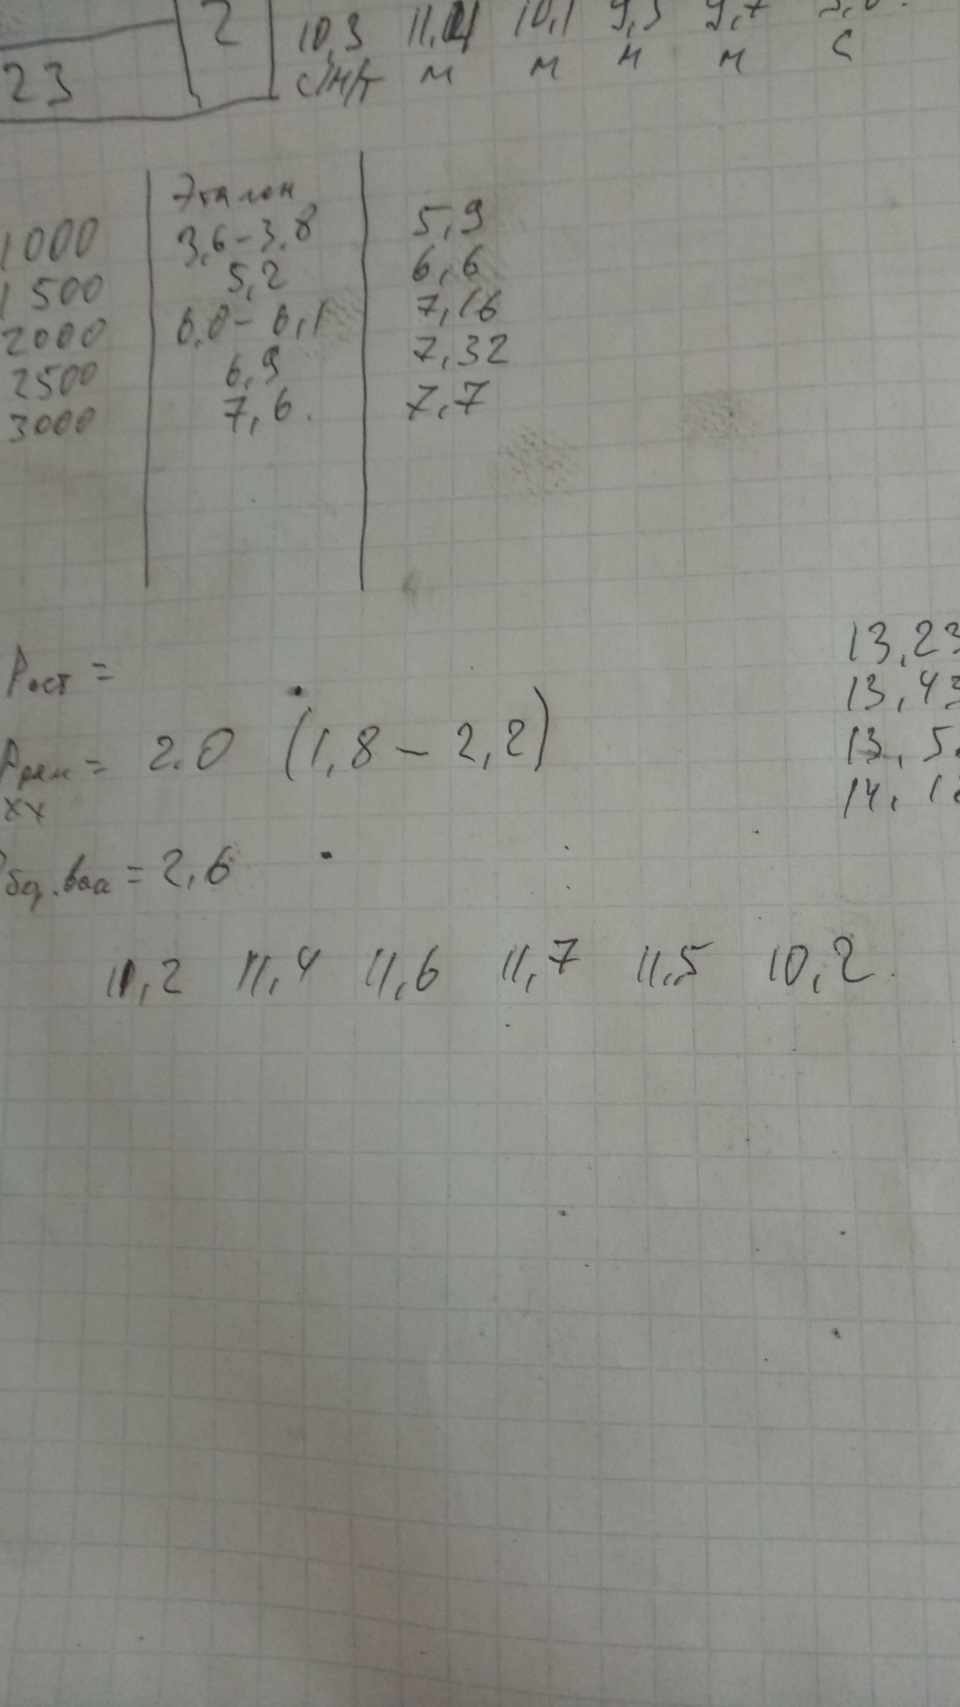 2 10,3 11,01 10,1 9,3 9,7
23 с/н/т м м н м с
Эталон
1000 3,6-3,8 5,9
1500 5,2 6,6
2000 6,0-6,1 7,16
2500 6,9 7,32
3000 7,6. 7,7
Рост = 13,23
13,43
2.0 (1,8-2,2) 13,5
хх 14,12
= 2,6
11,2 11,4 11,6 11,7 11,5 10,2.